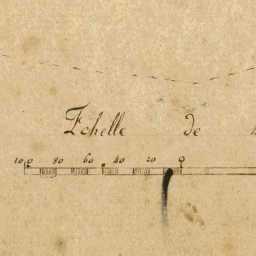 Echelle de
100 80 60 40 20 0